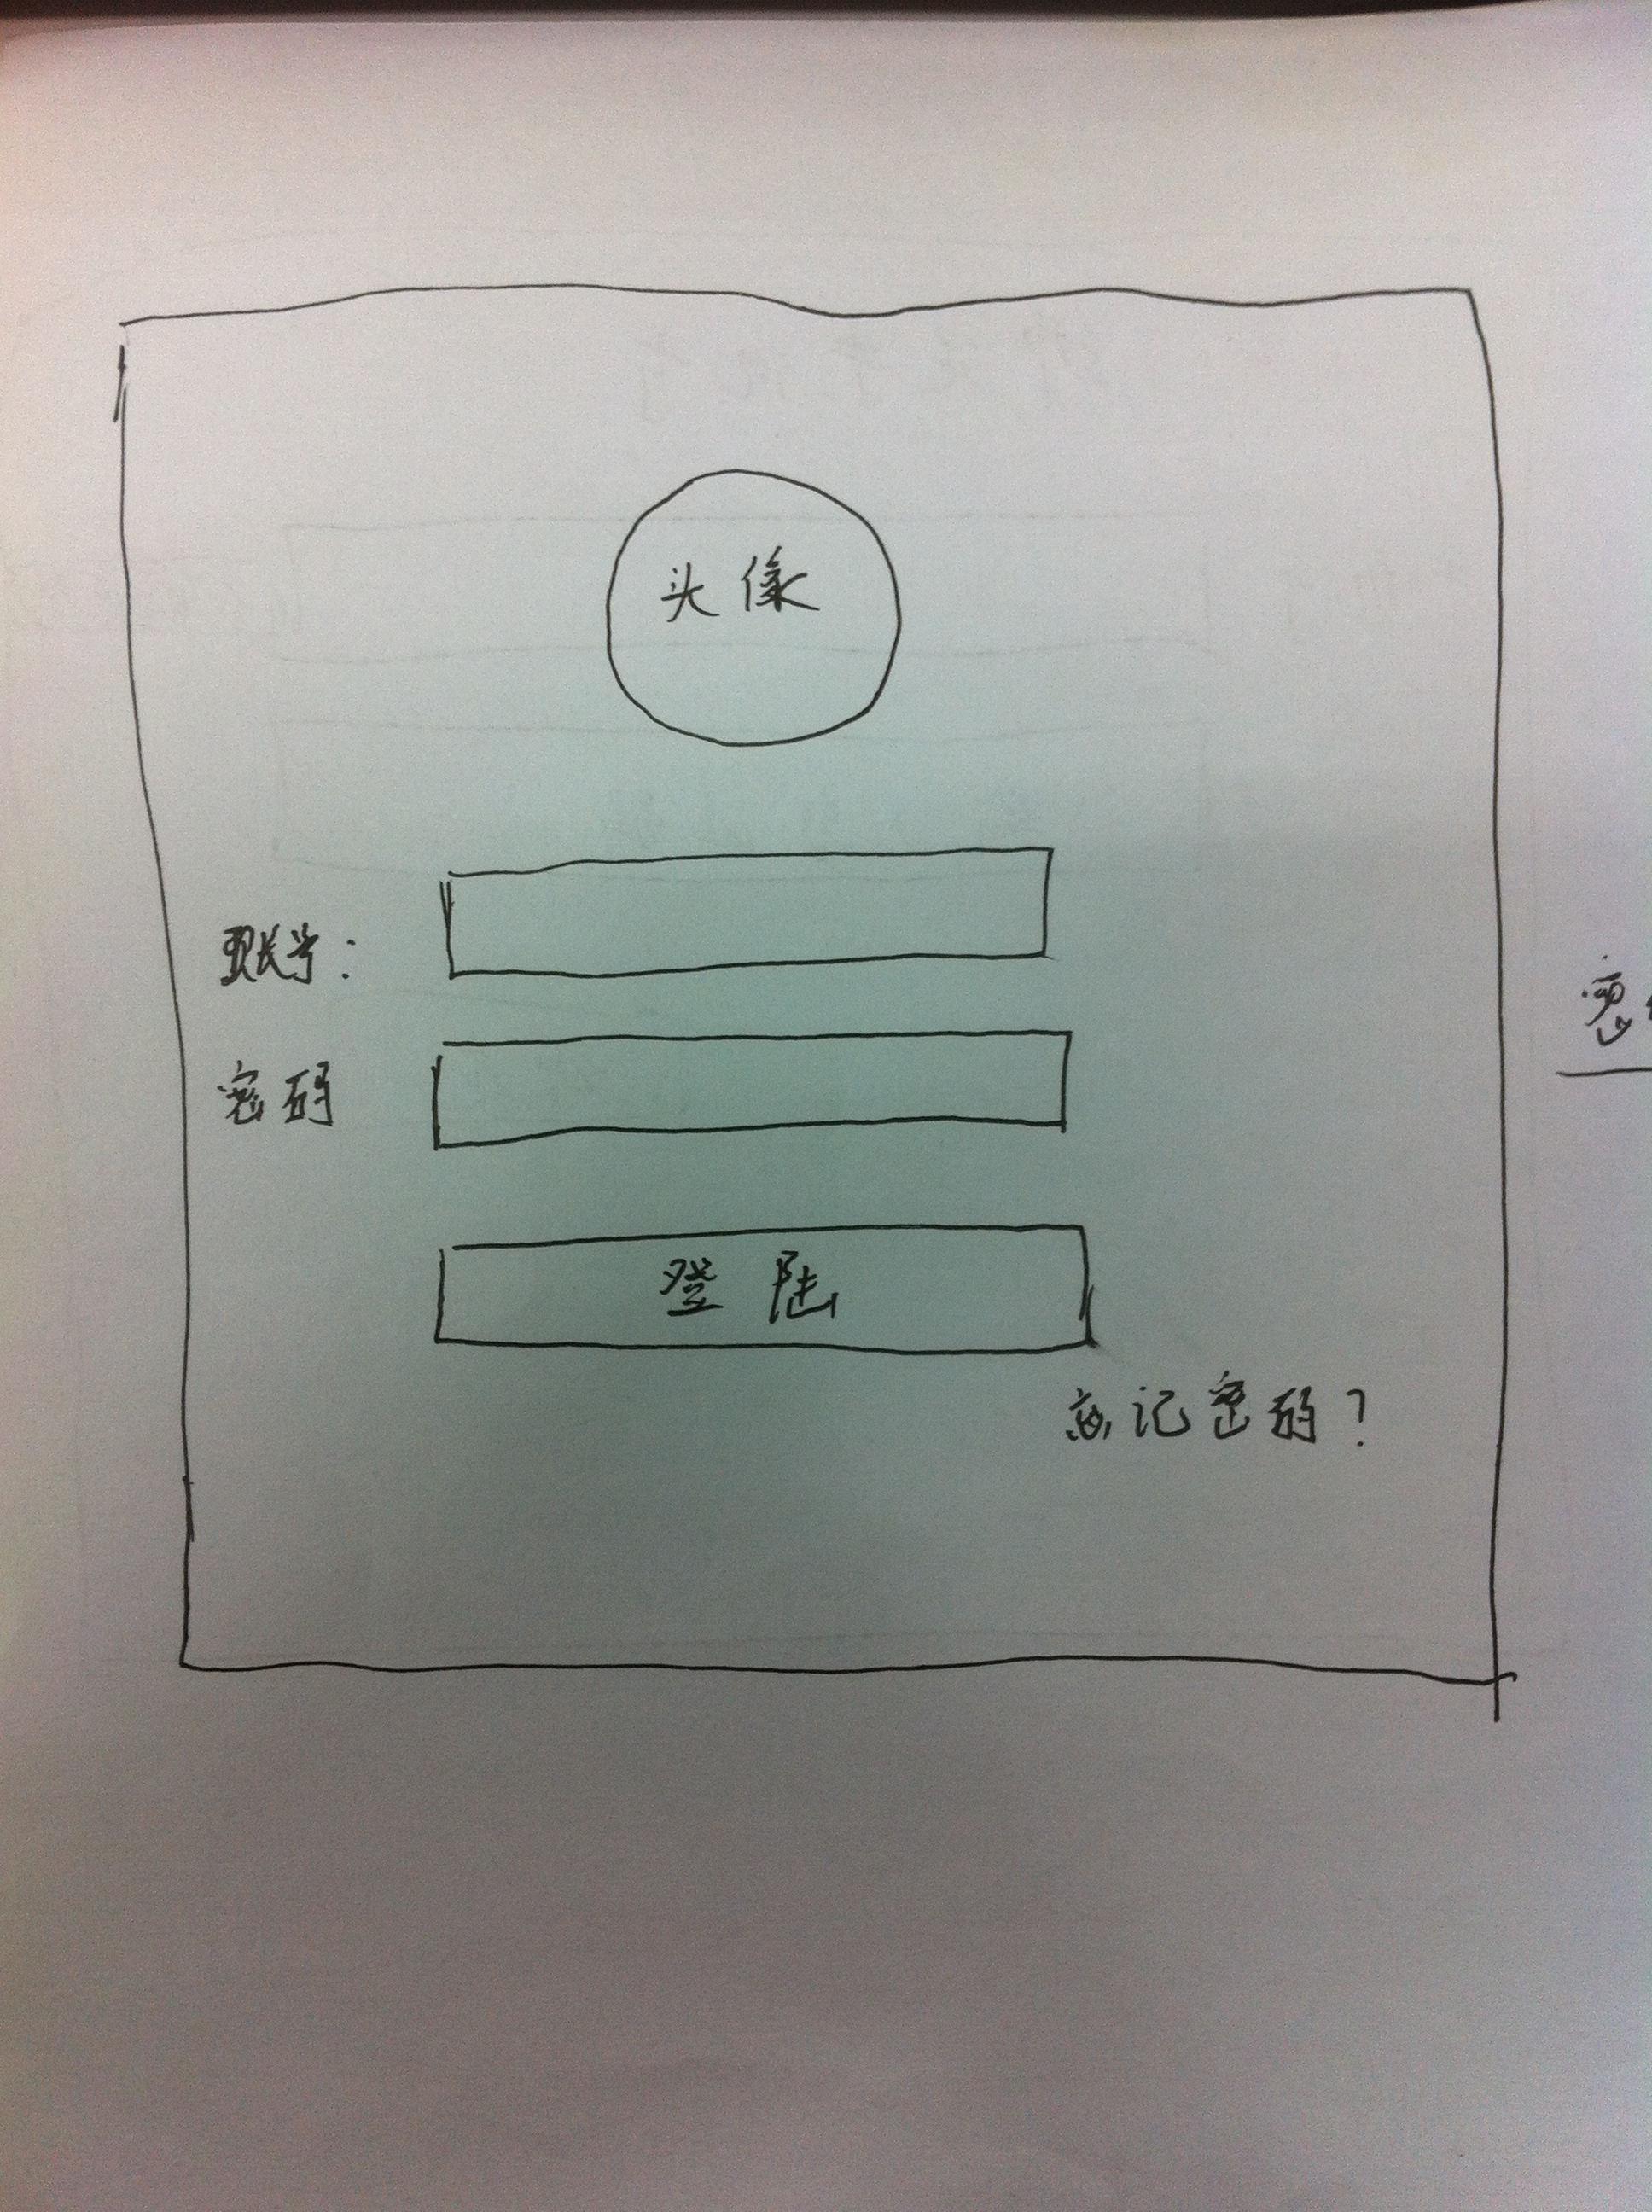 头像
账号:
密码
登陆
忘记密码?